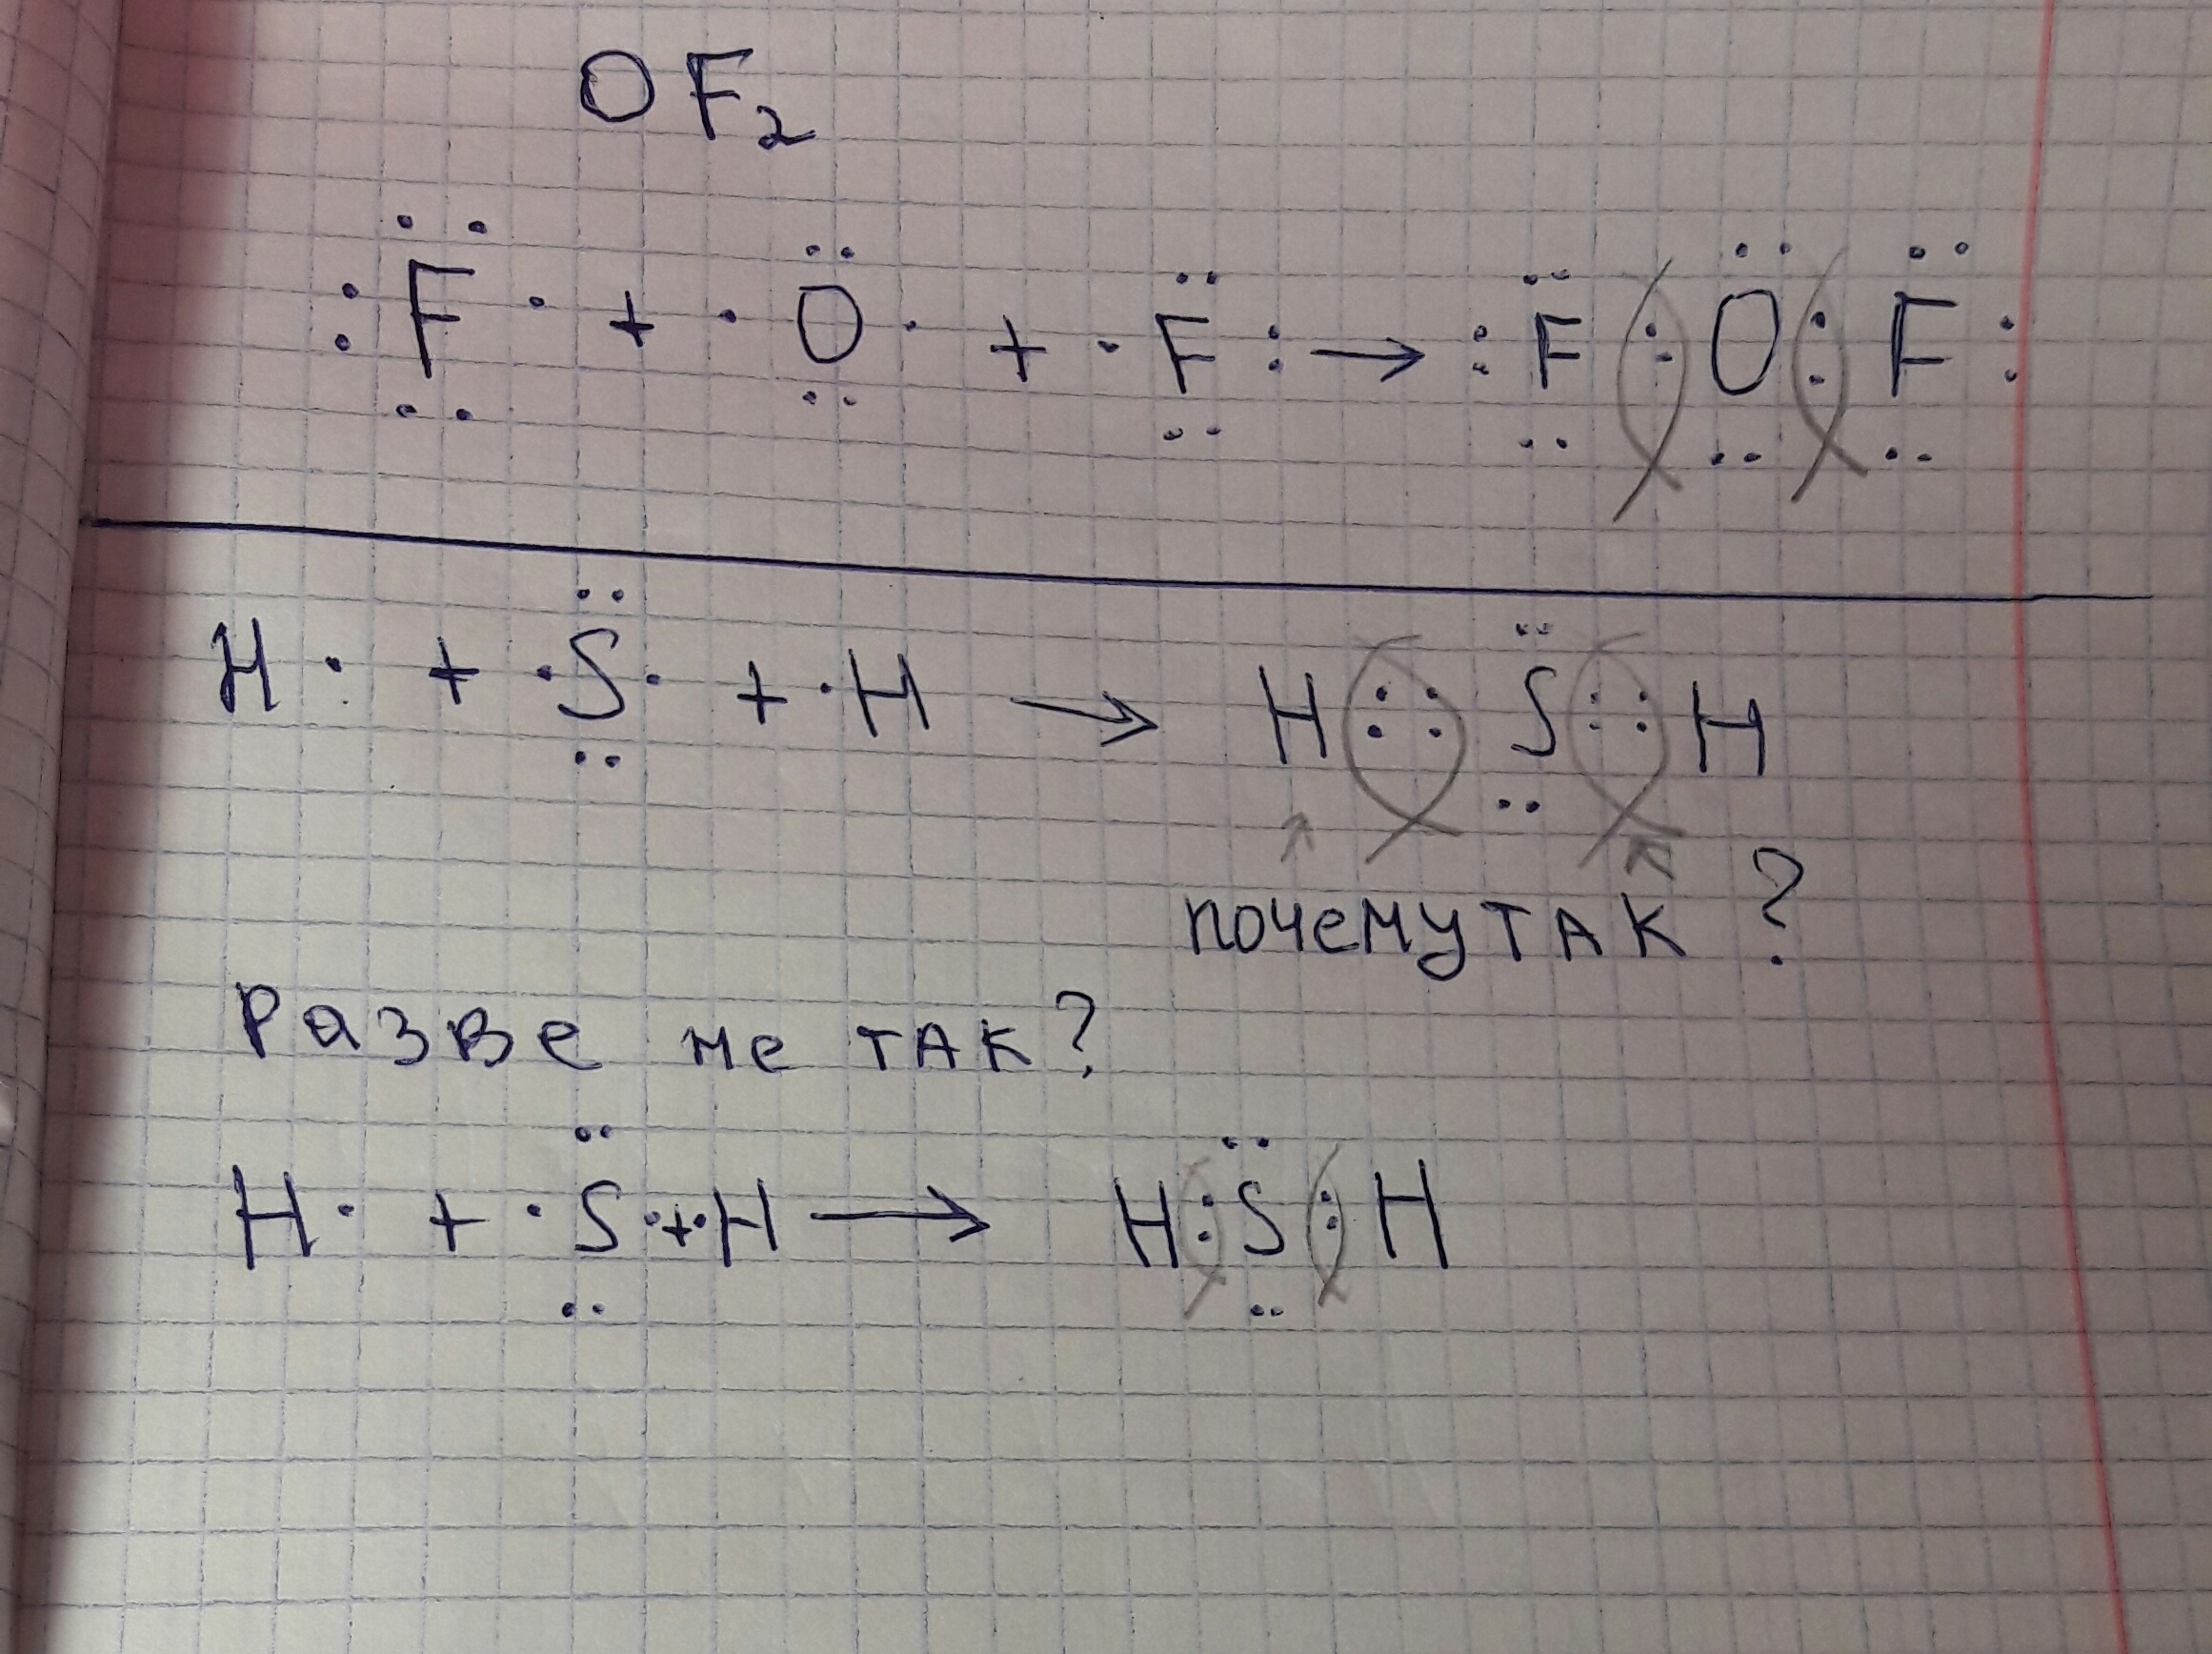 OF₂
:F· + ·O· + ·F: → :F:O:F:
H· + ·S· + ·H → H::S::H
почему так?
Разве не так?
H· + ·S· + ·H → H:S:H